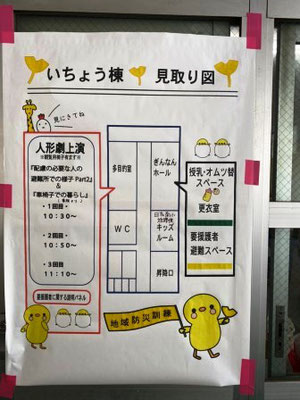 いちょう棟 見取り図
見にきてね
人形劇上演
『配慮の必要な人の
避難所での様子 Part2』
&
『車椅子での暮らし』
・1回目
10:30～
・2回目
10:50～
・3回目
11:10～
要援護者に関する説明パネル
多目的室
ぎんなん
ホール
WC
キッズ
ルーム
昇降口
授乳・オムツ替
スペース
更衣室
要援護者
避難スペース
地域防災訓練